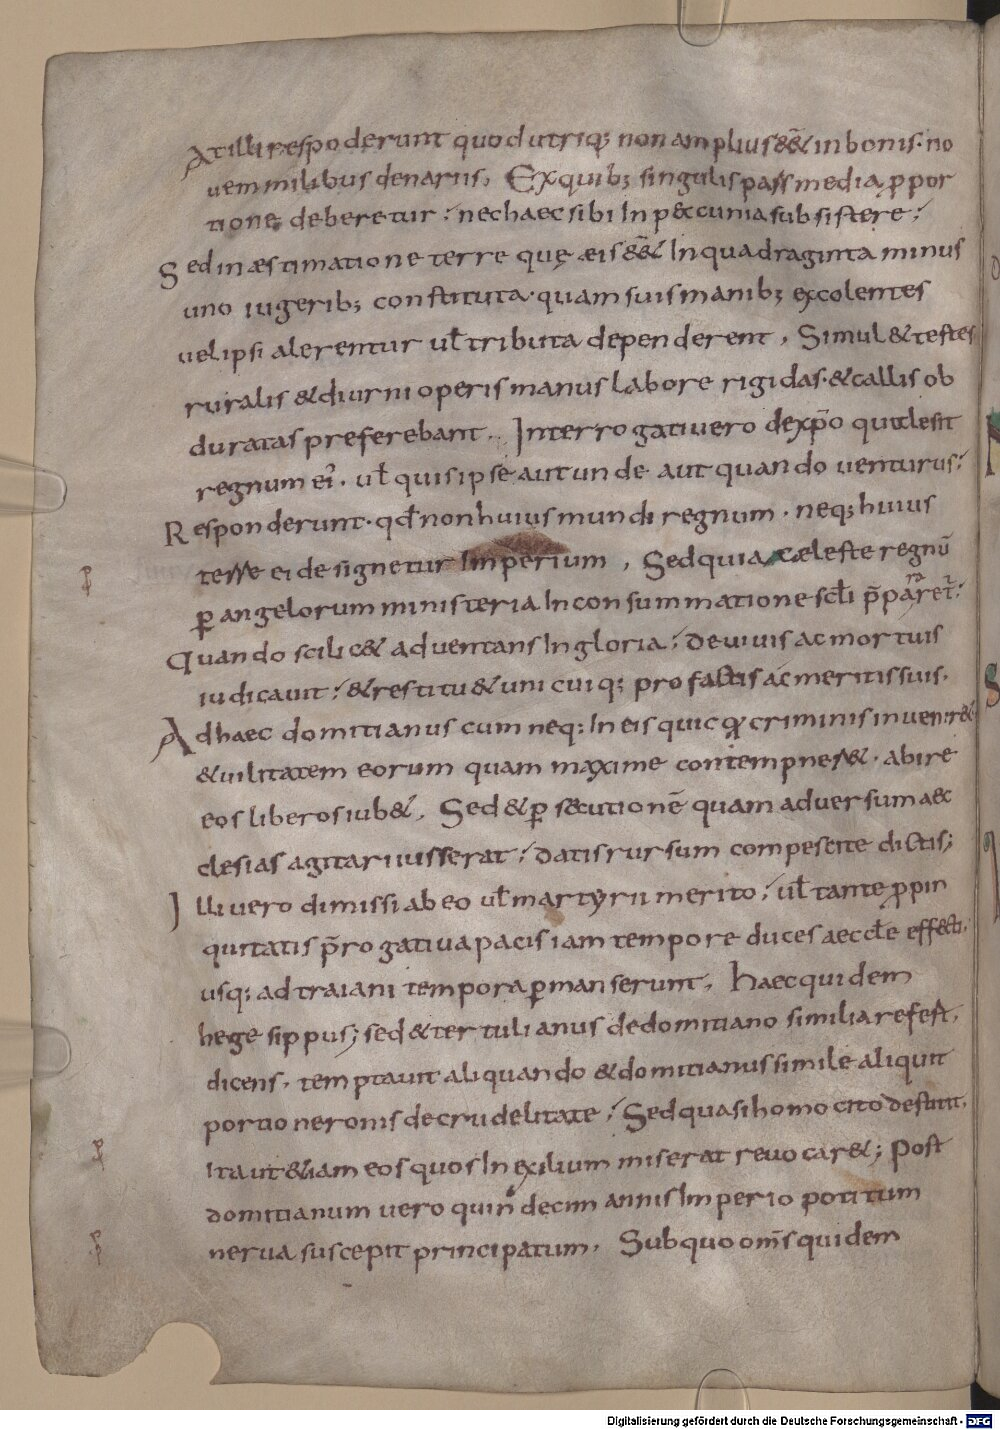 At illi respoderunt quod utriq; non amplius &&̃ in bonis · no
vem milibus denariis; Ex quib; singulis pars media ꝓpor
tione deberetur; nec haec sibi In p&ccunia subsistere;
Sed in aestimatione terre quę aeis &&̃ In quadraginta minus
uno iugerib; constituta · quam suis manib; excolentes
vel ipsi alerentur ul̃ tributa dependerent, Simul & testes
ruralis & diurni operis manus labore rigidas · & callis ob
duratas preferebant, Interrogati vero de xp̄o qui vel sit
regnum ei', ul̃ quis ipse aut unde aut quando venturus;
Responderunt · qđ non huius mundi regnum · neq; huius
terre ei designetur Imperium, Sed quia caeleste regnū
ꝑ angelorum ministeria In consummatione scl̃i p̄pararet̃;
Quando scilic& adventans In gloria; De vivis ac mortuis
iudicavit; & restitu& unicuiq; pro factis ac meritis suis,
Ad haec domitianus cum neq; In eis quicqꝫ criminis invenir&
& vilitatem eorum quam maxime contempner&, abire
eos liberos iub&, Sed & ꝑsecutionē quam adversum aec
clesias agitari iusserat; datis rursum compescite dictis;
Illi vero dimissi ab eo ul̃ martyrii merito; ul̃ tante ꝓpin
quitatis p̄rogativa pacis iam tempore duces aeccl̃e effecti,
usq; ad traiani tempora ꝑmanserunt, Haec quidem
hegesippus; sed & tertulianus de domitiano similia refert,
dicens, temptavit aliquando & domitianus simile aliquit
portio neronis de crudelitate; Sed quasi homo cito destitit,
Ita ut &iam eos quos In exilium miserat revocar&; Post
domitianum vero quindecim annis Imperio potitum
nerva suscepit principatum, Sub quo om̄s quidem
Digitalisierung gefördert durch die Deutsche Forschungsgemeinschaft - DFG